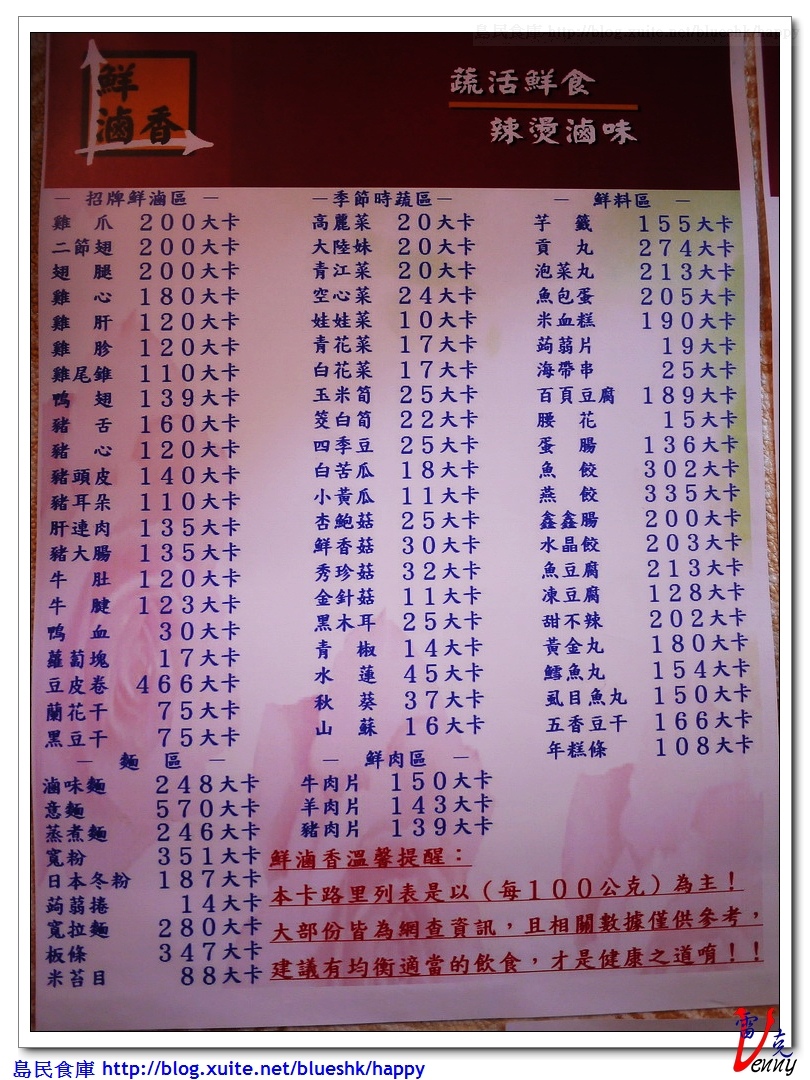 島民食庫 http://blog.xuite.net/blueshk/happy
鮮
滷香
蔬活鮮食
辣燙滷味
－ 招牌鮮滷區 －
雞 爪 200大卡
二節翅 200大卡
翅 腿 200大卡
雞 心 180大卡
雞 肝 120大卡
雞 胗 120大卡
雞尾錐 110大卡
鴨 翅 139大卡
豬 舌 160大卡
豬 心 120大卡
豬頭皮 140大卡
豬耳朵 110大卡
肝連肉 135大卡
豬大腸 135大卡
牛 肚 120大卡
牛 腱 123大卡
鴨 血 30大卡
蘿蔔塊 17大卡
豆皮卷 466大卡
蘭花干 75大卡
黑豆干 75大卡
－ 麵 區 －
滷味麵 248大卡
意麵 570大卡
蒸煮麵 246大卡
寬粉 351大卡
日本冬粉 187大卡
蒟蒻捲 14大卡
寬拉麵 280大卡
板條 347大卡
米苔目 88大卡
－季節時蔬區－
高麗菜 20大卡
大陸妹 20大卡
青江菜 20大卡
空心菜 24大卡
娃娃菜 10大卡
青花菜 17大卡
白花菜 17大卡
玉米筍 25大卡
筊白筍 22大卡
四季豆 25大卡
白苦瓜 18大卡
小黃瓜 11大卡
杏鮑菇 25大卡
鮮香菇 30大卡
秀珍菇 32大卡
金針菇 11大卡
黑木耳 25大卡
青 椒 14大卡
水 蓮 45大卡
秋 葵 37大卡
山 蘇 16大卡
－ 鮮肉區 －
牛肉片 150大卡
羊肉片 143大卡
豬肉片 139大卡
－ 鮮料區 －
芋 籤 155大卡
貢 丸 274大卡
泡菜丸 213大卡
魚包蛋 205大卡
米血糕 190大卡
蒟蒻片 19大卡
海帶串 25大卡
百頁豆腐 189大卡
腰 花 15大卡
蛋 腸 136大卡
魚 餃 302大卡
燕 餃 335大卡
鑫鑫腸 200大卡
水晶餃 203大卡
魚豆腐 213大卡
凍豆腐 128大卡
甜不辣 202大卡
黃金丸 180大卡
鱈魚丸 154大卡
虱目魚丸 150大卡
五香豆干 166大卡
年糕條 108大卡
鮮滷香溫馨提醒：
本卡路里列表是以（每100公克）為主！
大部份皆為網查資訊，且相關數據僅供參考，
建議有均衡適當的飲食，才是健康之道唷！！
雷克
Venny
島民食庫 http://blog.xuite.net/blueshk/happy